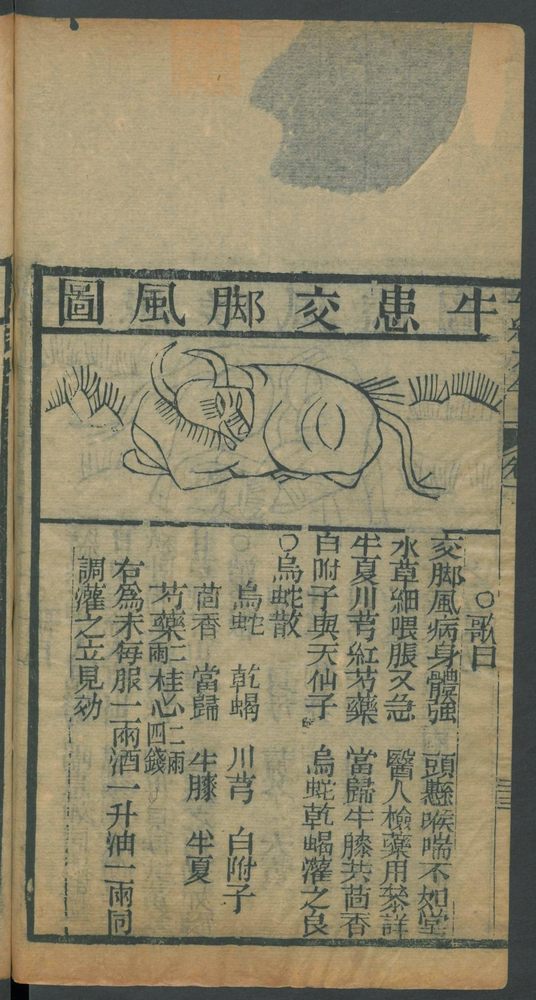 牛患交脚風圖
○歌曰
交脚風病身體強　頭懸喉喘不如堂
水草細喂脹又急　醫人檢藥用叅詳
半夏川芎紅芍藥　當歸牛膝共茴香
白附子與天仙子　烏蛇乾蝎灌之良
○烏蛇散
烏蛇　乾蝎　川芎　白附子
茴香　當歸　牛膝　半夏
芍藥二兩桂心二兩四錢
右為末每服一兩酒一升油一兩同
調灌之立見効